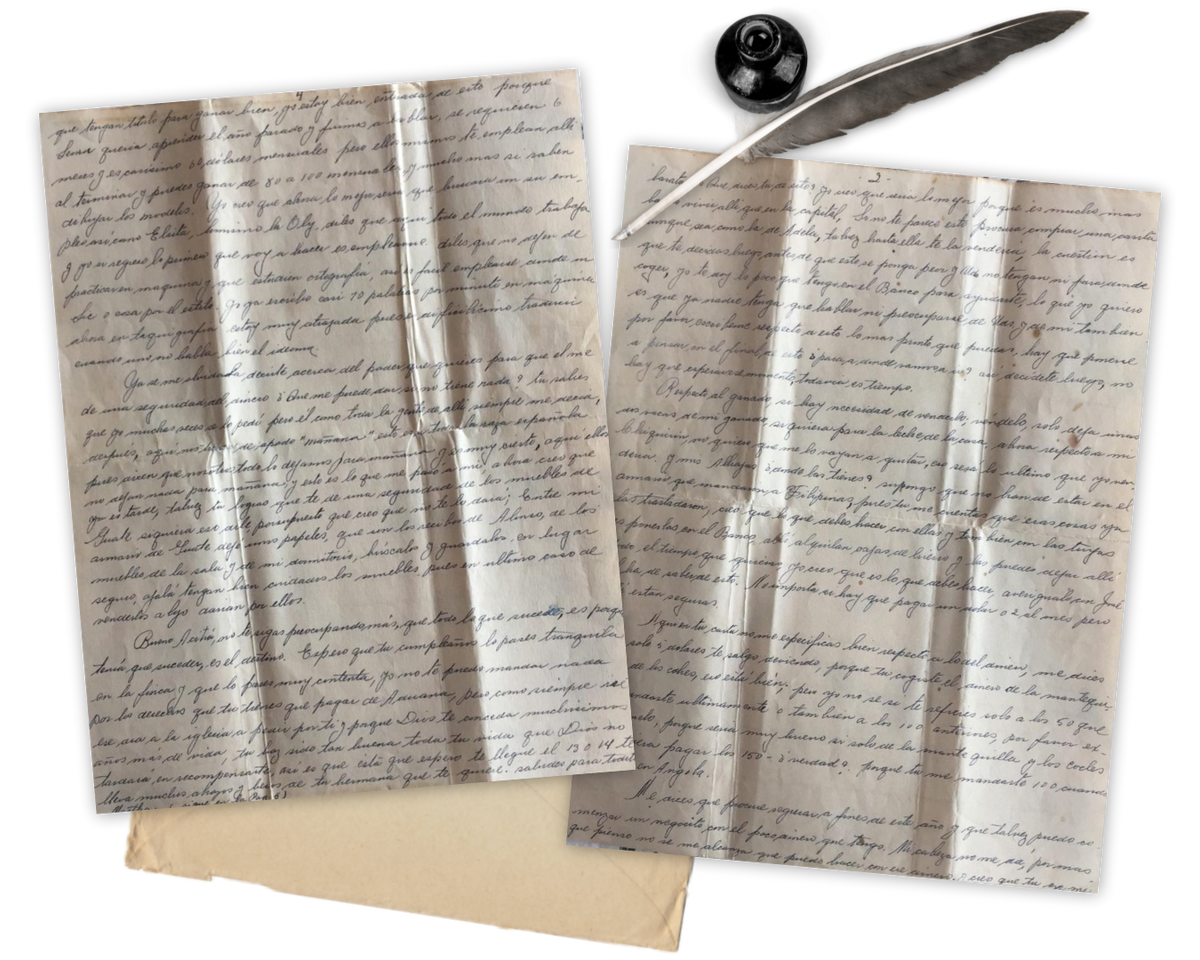 4
que tengan titulo para ganar bien, yo estoy bien enterada de esto porque
Sara queria aprender el año pasado y fuimos a hablar, se requieren 6
meses y es carisimo 60 dolares mensuales pero ellos mismos te emplean alli
al terminar y puedes ganar de 80 a 100 mensuales, y mucho mas si saben
dibujar los modelos. Yo creo que ahora lo mejor seria que buscara un su em-
pleo asi como Elsita, lo mismo la Olg, diles que aqui todo el mundo trabaja
y yo si regreso lo primero que voy a hacer es emplearme. diles que no dejen de
practicar en maquina y que estudien ortografia asi es facil emplearse, donde
che o cosa por el estilo. Yo ya escribo casi 70 palabras por minuto en maquina
ahora en taquigrafia estoy muy atrazada pues es dificilisimo traducir
cuando uno no habla bien el idioma.
Ya se me olvidaba decirte acerca del poder que quieres para que el me
de una seguridad del dinero ¿Que me puede dar si no tiene nada? tu sabes
que yo muchas veces se lo pedi pero el como toda la gente de alli siempre me decia,
despues, aqui nos han de apodo "mañana" esto es toda la raza española
pues dicen que nosotros todo lo dejamos para mañana, y es muy cierto, aqui ellos
no dejan nada para mañana; y esto es lo que me paso a mi, ahora creo que
ya es tarde, talvez tu logras que te de una seguridad de los muebles de
Guate siquiera eso, de lo por supuesto que creo que no te lo dara; Entre mi
armario de Guate deje unos papeles, que son los recibos de Alonso, de los
muebles de la sala y de mi dormitorio, búscalos y guardalos, en lugar
seguro, ojalá tengan bien cuidados los muebles pues en ultimo caso de
venderlos algo darian por ellos.
Bueno no te sigas preocupando más, que todo lo que sucede, es porque
tenia que suceder, es el destino. Espero que tu cumpleaños lo pases tranquila
en la finca y que lo pases muy contenta, yo no te puedo mandar nada
por los derechos que tu tienes que pagar de Aduana, pero como siempre iré
ese dia a la iglesia a pedir por ti y porque Dios te conceda muchisimos
años más, de vida, tu haz sido tan buena toda tu vida que Dios no
tardara en recompensarte, asi es que está que espero te llegue el 13 o 14 te
lleva muchos abrazos y besos de tu hermana que te quiere. saludes para todos
2
barato ¿Que dices tu de esto? yo creo que seria lo mejor porque es mucho mas
vivir alli que en la capital, Si no te parece esto procura comprar una casita
aunque sea como la de Adela, talvez hasta ella te la venderia, la cuestion es
que te decidas luego, antes de que esto se ponga peor y Uds no tengan ni para donde
coger, yo te doy lo poco que tengo en el Banco para ayudarte, lo que yo quiero
es que ya nadie tenga que hablar ni preocuparse de Uds, y de mi tambien
por favor escribeme respecto a esto lo mas pronto que puedas, hay que ponerse
a pensar en el final de esto ¿para a donde vamos a ir? asi decidete luego, no
hay que esperar el momento, todavia es tiempo.
Respecto al ganado si hay necesidad de venderlo, vendelo, solo deja unas
vacas de mi ganado siquiera para la leche de la casa, ahora respecto a mi
chiquirin, no quiero que me lo vayan a quitar, eso sera lo ultimo que yo ven-
deria. y mis alhajas ¿donde las tienes? supongo que no han de estar en el
armario que mandaron a Filipinas, pues tu me cuentas que esas cosas ya
las trasladaron, creo que lo que debes hacer con ellas y tambien con las tuyas
es ponerlas en el Banco, alli alquilan cajas de hierro y las puedes dejar alli
el tiempo que quieras, yo creo, que es lo que debes hacer, averigualo con José
ha de saber de esto. No importa si hay que pagar un dolar o 2 al mes pero
estan seguras.
Aqui en tu carta no me especificas bien respecto a lo del dinero, me dices
solo 5 dolares te salgo debiendo, porque tu cogiste el dinero de la mantequi-
de los cocles, eso está bien; pero yo no se si te refieres solo a los 50 que
mandaste ultimamente o tambien a los 100 anteriores, por favor ex-
porque seria muy bueno si solo de la mantequilla y los cocles
pagar los 150- ¿verdad?. porque tu me mandaste 100, cuando
en Angola.
Me dices que procure regresar a fines de este año y que talvez puedo co-
menzar un negocito con el poco dinero que tengo. Mi cabeza no me dá, por mas
que pienso no se me alcanza que puedo hacer con ese dinero. creo que tu